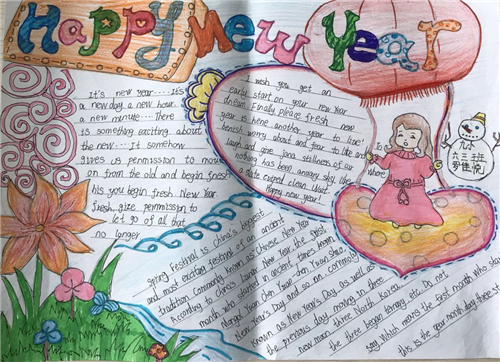 Happy New Year
It's new year....It's
a new day a new hour.
a new minute....There
is something exciting about
the new....It somehow
gives us penmission to move
on from the old and begin fresh
his you begin fresh. New Year
fresh, give permission to
let go of all that
no longer
I wish you get an
early start on your new year
dream. Finally please fresh new
year is here another year to live!
banish worry about and fear to like and
laugh and give
nothing has been
Happy new year!
where
六三班
Spring Festival is China's biggest
and most exciting festival of an ancient
tradition Commonly known as Chinese New Year
According to China's lunar New Year the first
month, who started in ancient times began,
New Year's Day and so on, commonly
known as New Year's Day as well as
the previous day, moving in three
new many three North Korea,
the three began terrors, etc. Do not
say which means the first Month who
this is the year month day three